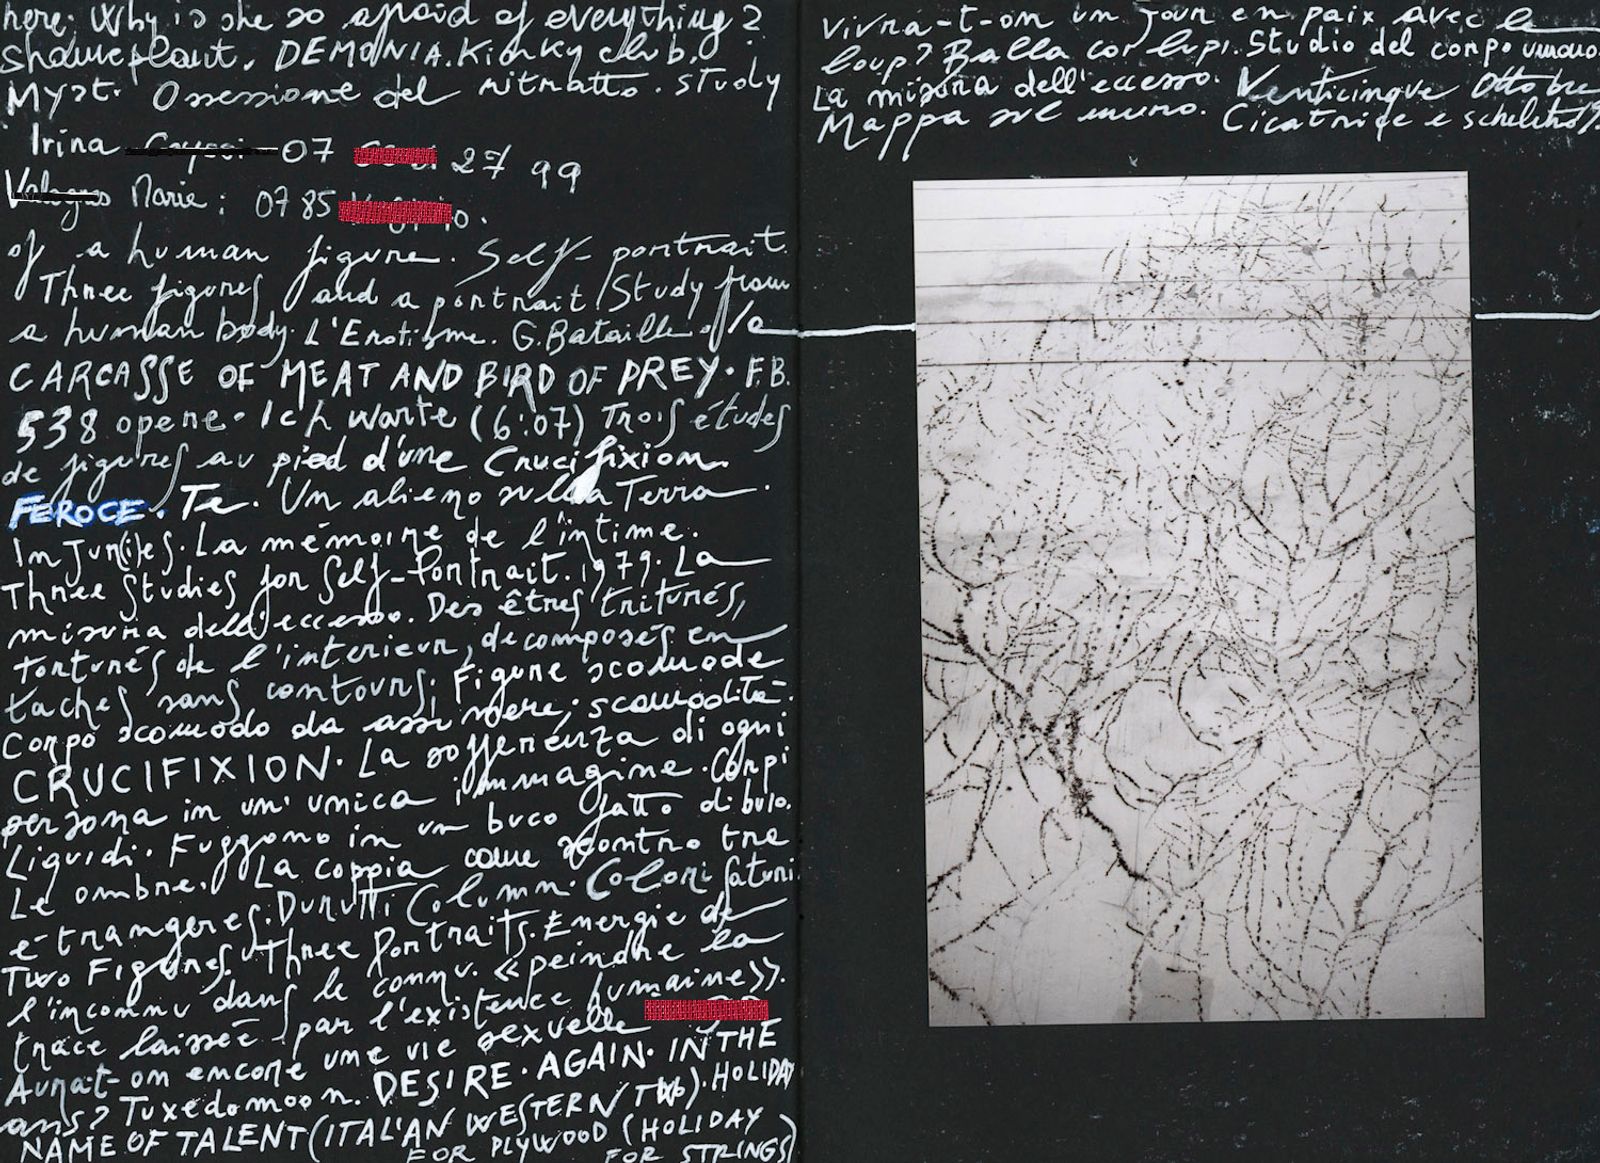 here. Why is she so afraid of everything?
shameplant. DEMONIA. Kinky club.
Myst. Ossessione del ritratto. Study
Irina 07 27 99
Marie: 07 85
of a human figure. Self-portrait.
Three figures and a portrait. Study from
a human body. L'Erotisme. G. Bataille
CARCASSE OF MEAT AND BIRD OF PREY. F.B.
538 opere. Ich warte (6:07) Trois études
de figures au pied d'une Crucifixion.
FEROCE. Te. Un alieno sulla Terra.
Injuries. La mémoire de l'intime.
Three Studies for Self-Portrait. 1979. La
misura dell'eccesso. Des êtres triturés,
torturés de l'interieur, decomposés en
taches sans contours; Figure scomode
Corpo scomodo da assumere; scomodità.
CRUCIFIXION. La sofferenza di ogni
persona in un' unica immagine. Corpi
Liquidi. Fuggono in un buco fatto di buio.
Le ombre. La coppia come scontro tre
étrangeres. Durutti Column. Colori saturi.
Two Figures. Three Portraits. Energie de
l'inconnu dans le connu. «peindre la
trace laissée par l'existence humaine».
Aurat-on encore une vie sexuelle
ans? Tuxedomoon. DESIRE. AGAIN. IN THE
NAME OF TALENT (ITALIAN WESTERN TWO). HOLIDAY
FOR PLYWOOD (HOLIDAY
FOR STRINGS)
Vivra-t-on un jour en paix avec le
loup? Balla coi lupi. Studio del corpo umano.
La misura dell'eccesso. Venticinque Ottobre
Mappa sul muro. Cicatrice e scheletro